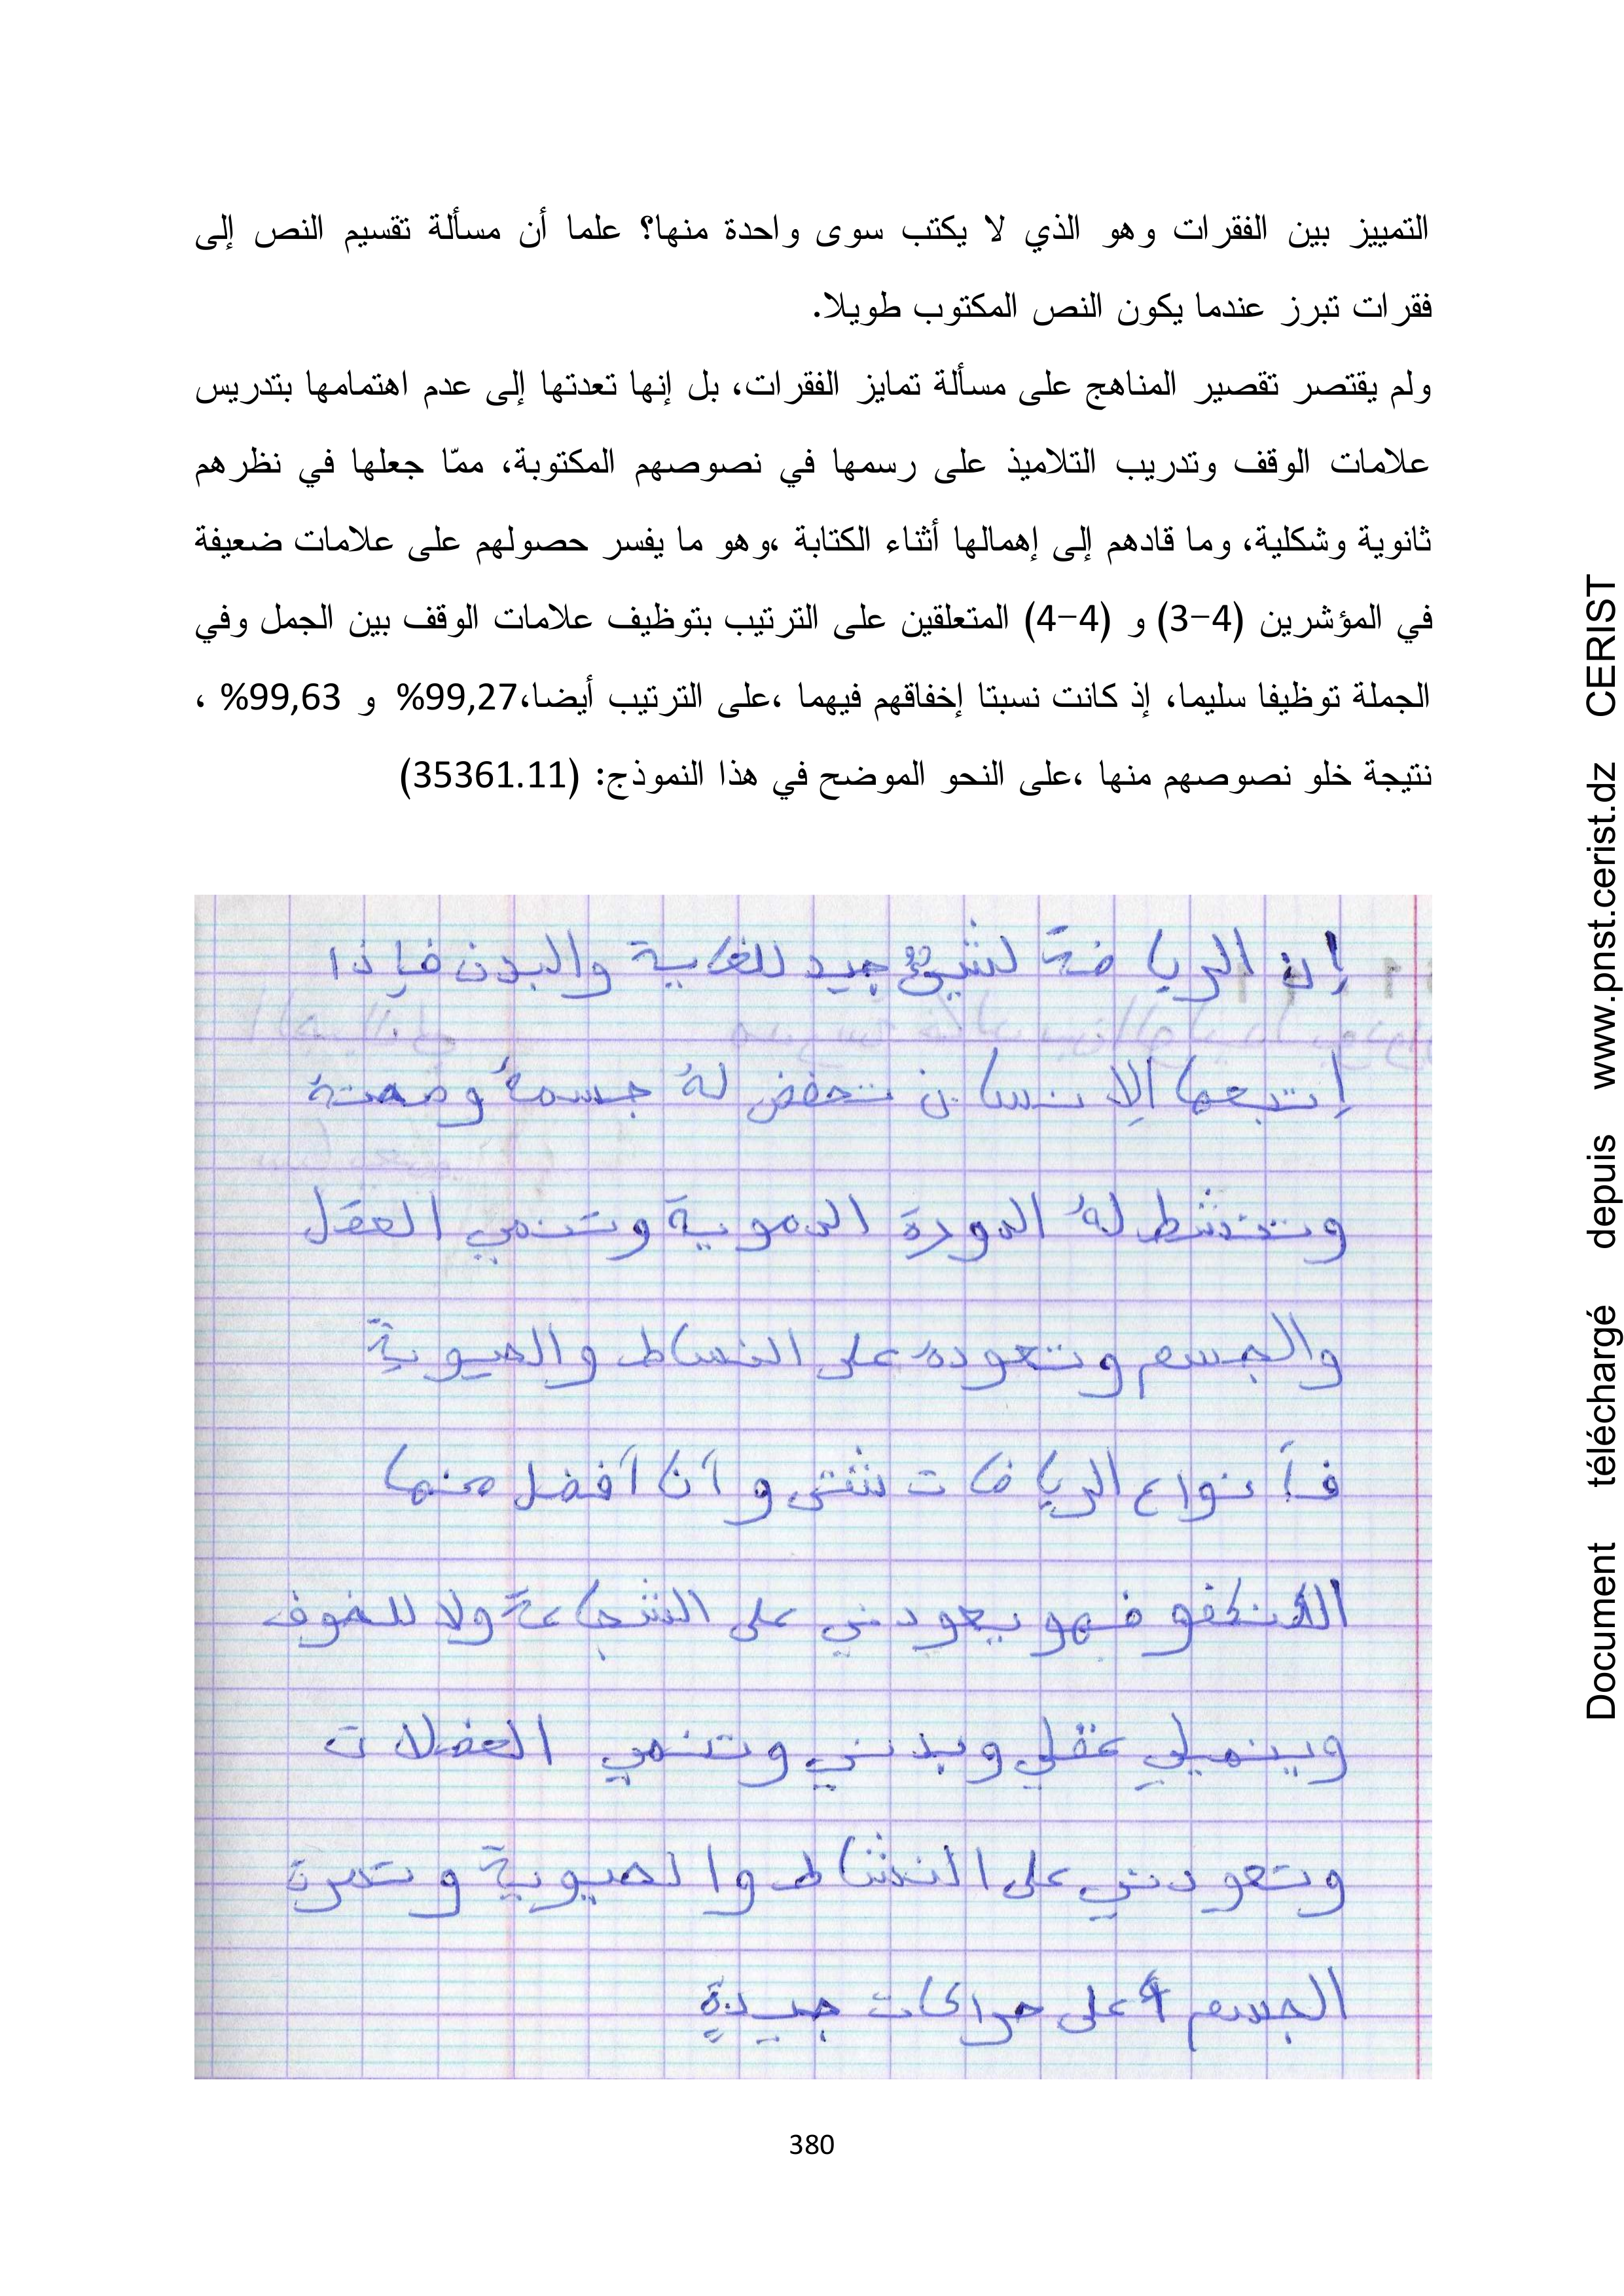 التمييز بين الفقرات وهو الذي لا يكتب سوى واحدة منها؟ علما أن مسألة تقسيم النص إلى
فقرات تبرز عندما يكون النص المكتوب طويلا.
ولم يقتصر تقصير المناهج على مسألة تمايز الفقرات، بل إنها تعدتها إلى عدم اهتمامها بتدريس
علامات الوقف وتدريب التلاميذ على رسمها في نصوصهم المكتوبة، ممّا جعلها في نظرهم
ثانوية وشكلية، وما قادهم إلى إهمالها أثناء الكتابة ،وهو ما يفسر حصولهم على علامات ضعيفة
في المؤشرين (4-3) و (4-4) المتعلقين على الترتيب بتوظيف علامات الوقف بين الجمل وفي
الجملة توظيفا سليما، إذ كانت نسبتا إخفاقهم فيهما ،على الترتيب أيضا،99,27% و 99,63% ،
نتيجة خلو نصوصهم منها ،على النحو الموضح في هذا النموذج: (35361.11)
إن الرياضة لشيئ جيد للغاية والبدن فإذا
إتبعها الإنسان تحفض لهُ جسمهُ وصحته
وتنشط لهُ الدورة الدموية وتنمي العقل
والجسم وتعوده على النساط والحيوية
فأنواع الرياضات شتى وأنا أفضل منها
الكنكفو فهو يعودني على الشجاعة ولا للخوف
وينميلي عقلي وبدني وتنمي العضلات
وتعودني على النشاط والحيوية وتمرن
الجسم على حراكات جديدة
380
Document téléchargé depuis www.pnst.cerist.dz CERIST